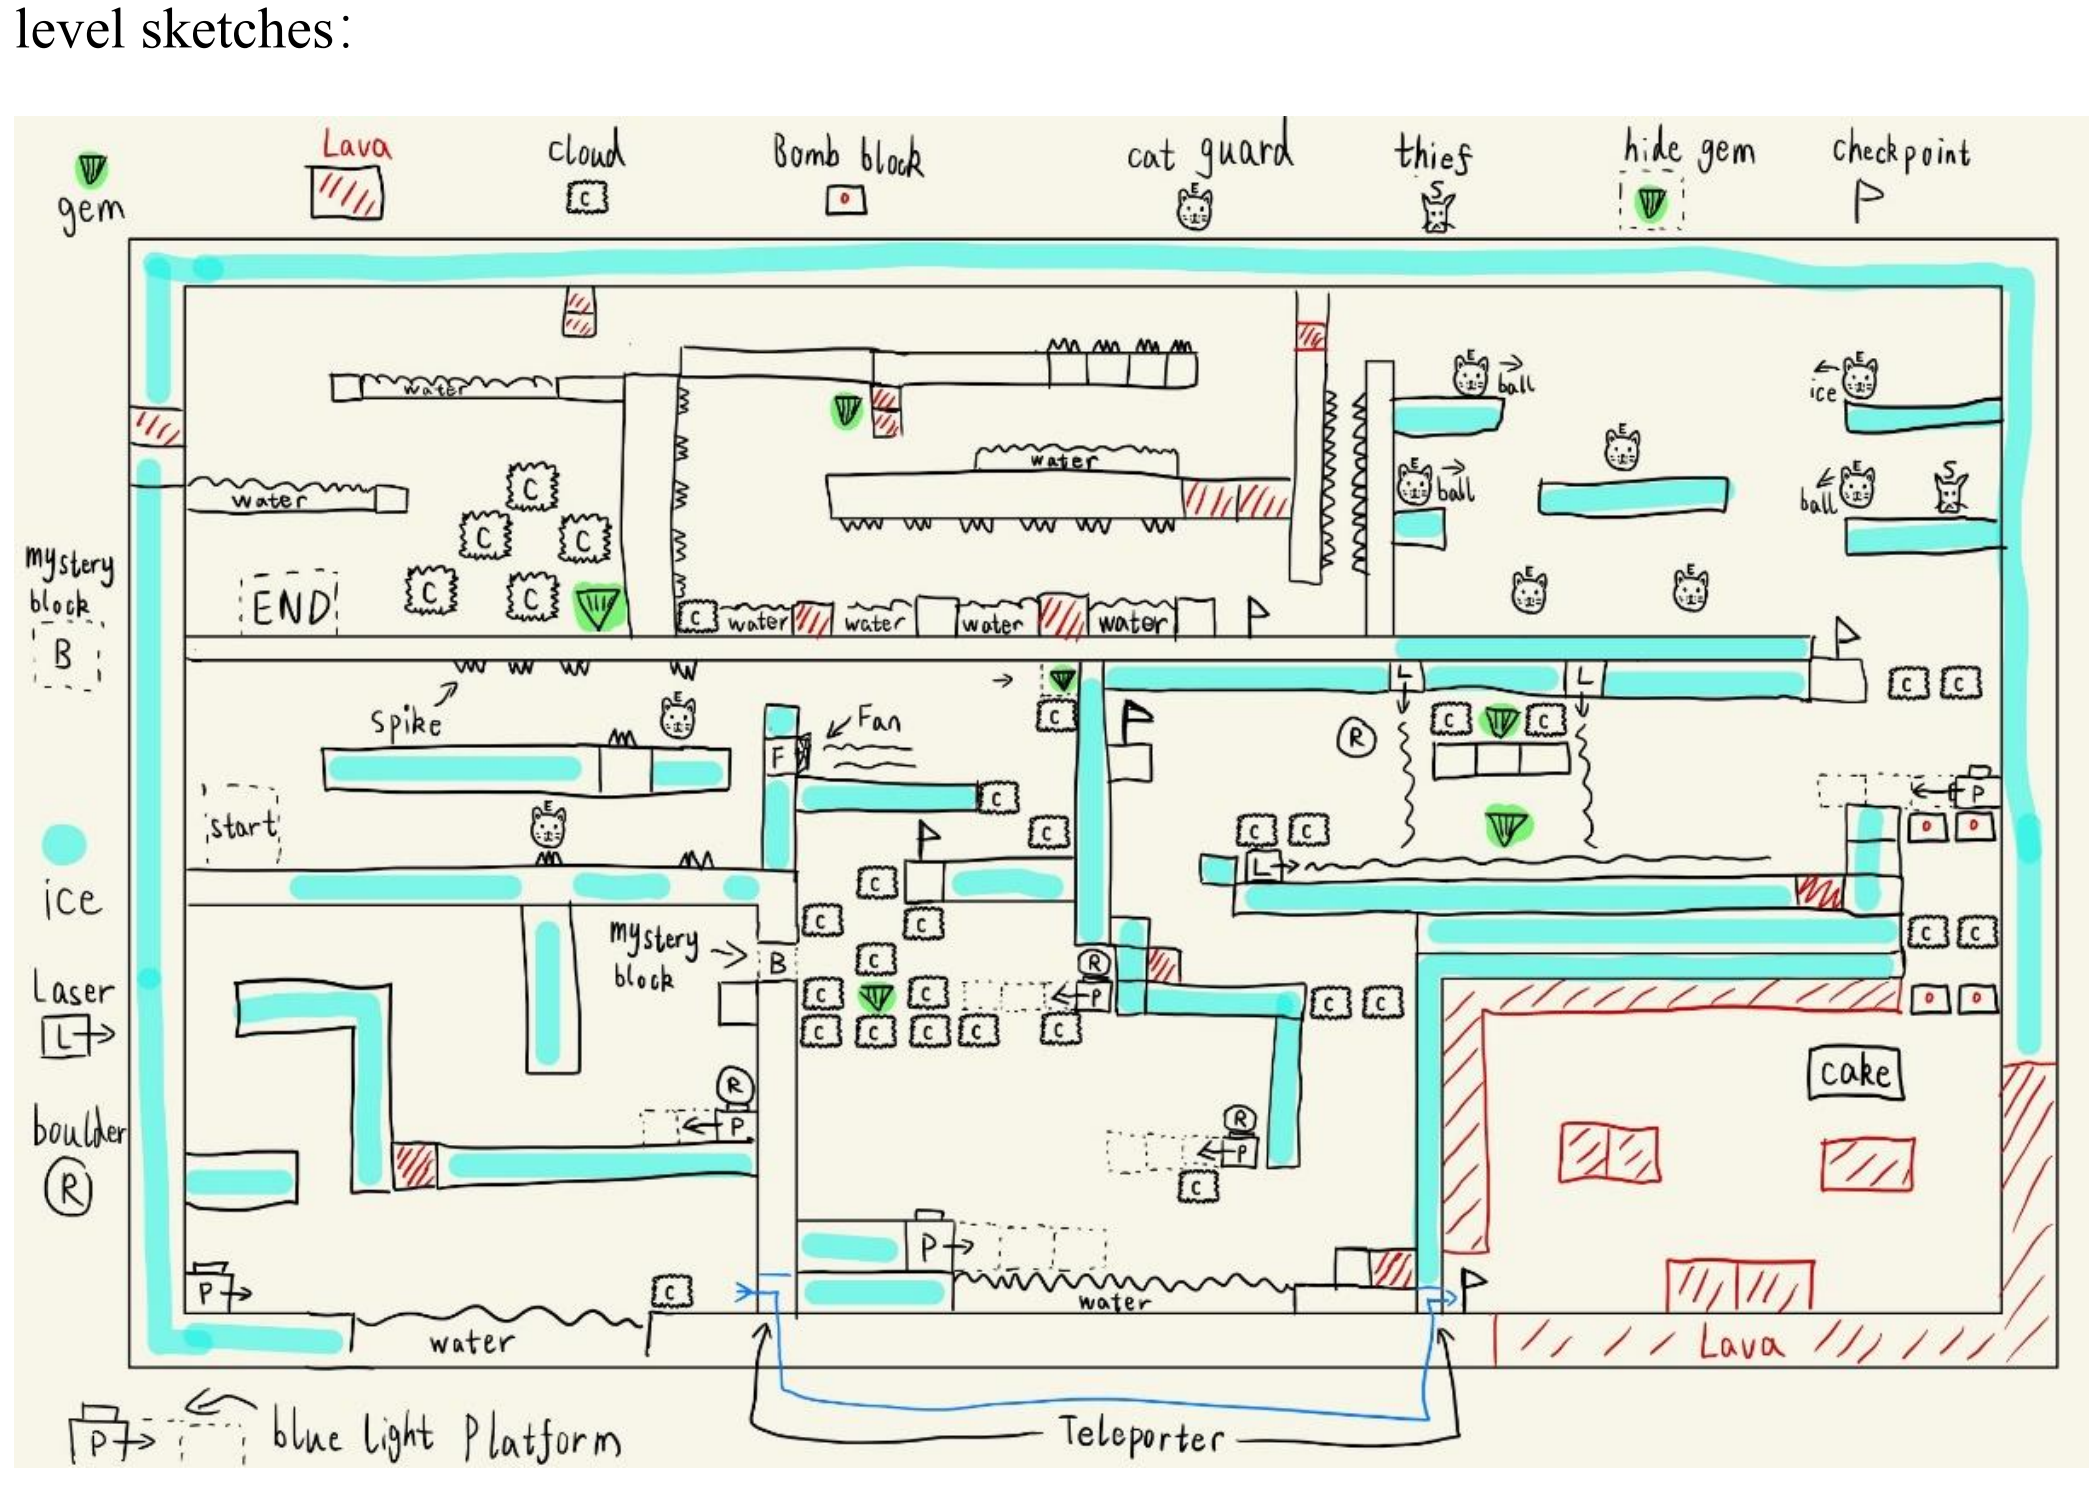 level sketches:
Lava cloud Bomb block cat guard thief hide gem checkpoint
C E S
gem
E ball E ice
water
E
water E ball E ball S
C
water
C C
mystery block
B
END
C C
E E
C water water water water
L L
C C
Spike
E
Fan
C
R
C C
F
start
C
P
E
C
C C
L
ice
C
C C
mystery block
B
C
R
C C
Laser
L
C C
P
C C
C C C C C
cake
boulder
R
R
P
R
P
C
P
P
C
water
water
Lava
Teleporter
P
blue light Platform